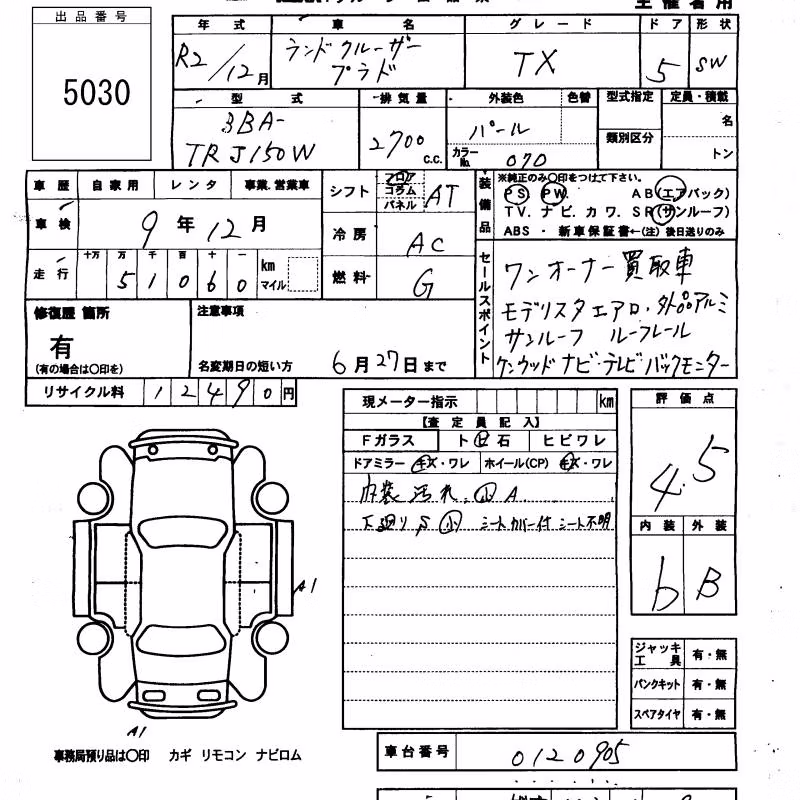 出品番号
5030
年式 車名 グレード ドア 形状
R2/12月 ランドクルーザー プラド TX 5 SW
型式 排気量 外装色 色替 型式指定 定員・積載
3BA-
TRJ150W 2700 c.c. パール 類別区分 名
カラーNo. 070 トン
車歴 自家用 レンタ 事業.営業車
シフト フロア コラム パネル AT
装備品 ※純正のみ○印をつけて下さい。
PS. PW. AB(エアバック)
TV. ナビ. カワ. SR(サンルーフ)
ABS ・ 新車保証書←(注) 後日送りのみ
車検 9年12月
冷房 AC
走行 十万 万 千 百 十 一
51060 km マイル
燃料 G
セールスポイント
ワンオーナー買取車
モデリスタエアロ・外品アルミ
サンルーフ ルーフレール
ケンウッドナビ・テレビ・バックモニター
修復歴 箇所
有
(有の場合は○印を)
注意事項
名変期日の短い方 6月27日まで
リサイクル料 12490円
現メーター指示 km
【査定員記入】
Fガラス ト ビ 石 ヒビワレ
ドアミラー キズ・ワレ ホイール(CP) キズ・ワレ
内装 汚れ. 小 A.
下廻り S 小 シートカバー付 シート不明
評価点
4.5
内装 外装
b B
A1
A1
ジャッキ工具 有・無
パンクキット 有・無
スペアタイヤ 有・無
事務局預り品は○印 カギ リモコン ナビロム
車台番号 0120905